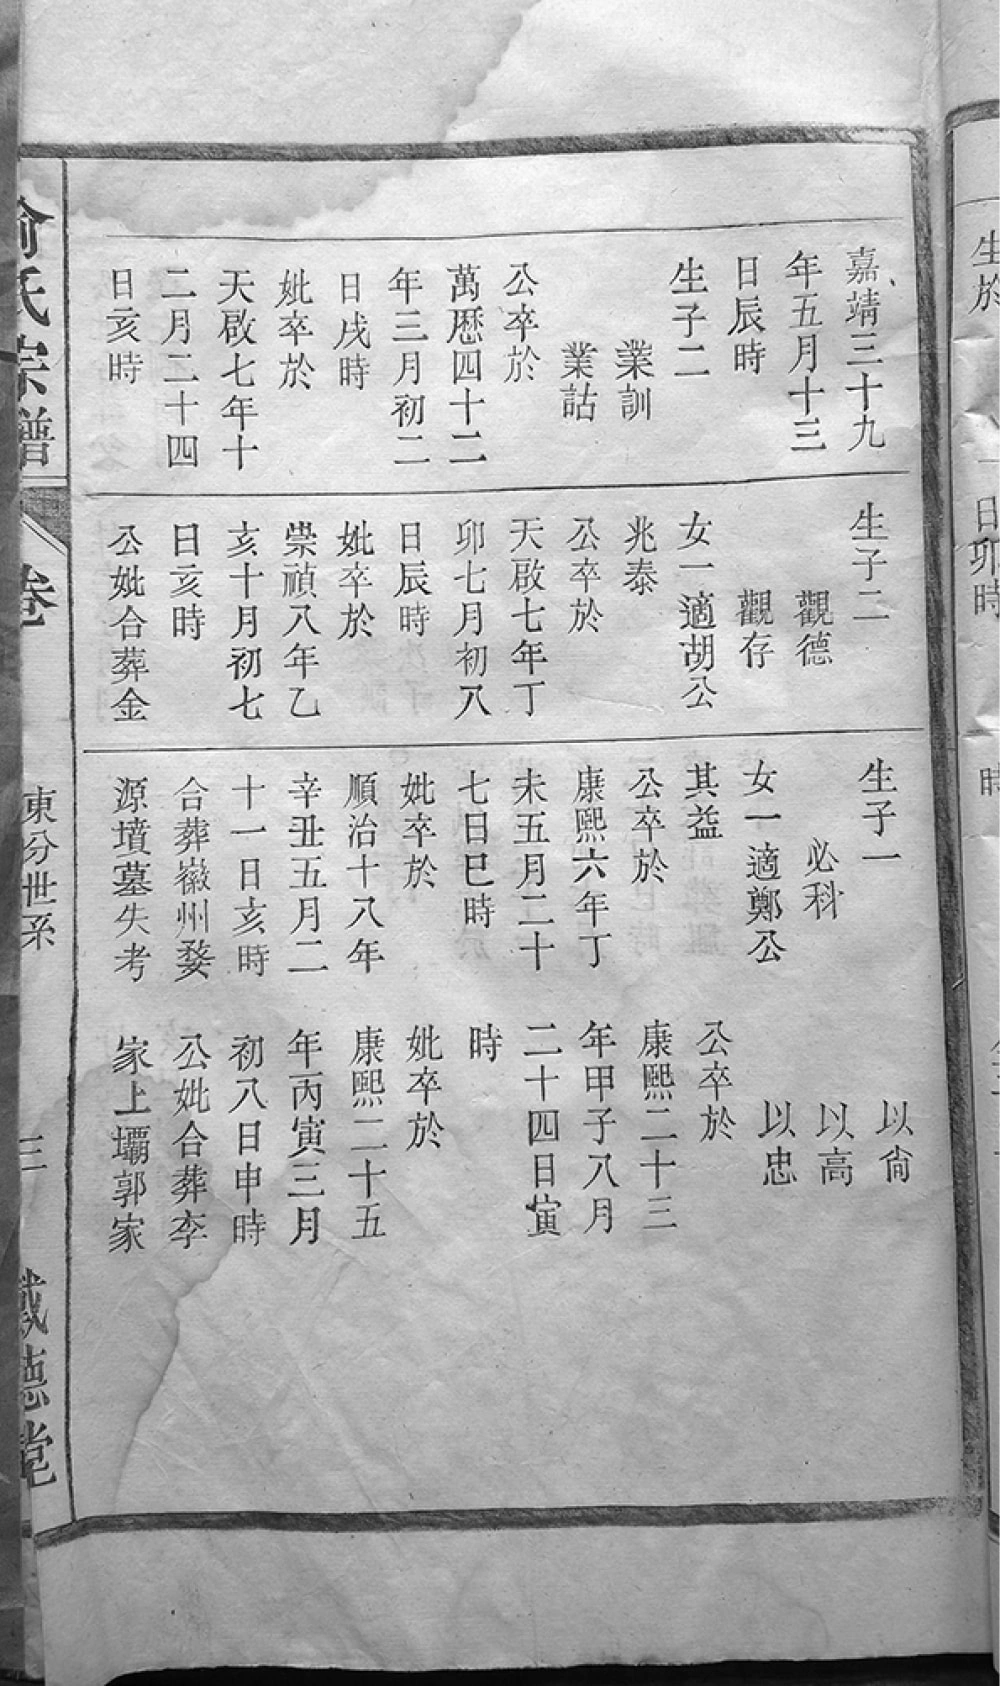 生於
日卯時
嘉靖三十九
年五月十三
日辰時
生子二
業訓
業詁
公卒於
萬歷四十二
年三月初二
日戌時
妣卒於
天啟七年十
二月二十四
日亥時
生子二
觀德
觀存
女一適胡公
兆泰
公卒於
天啟七年丁
卯七月初八
日辰時
妣卒於
崇禎八年乙
亥十月初七
日亥時
公妣合葬金
生子一
必科
女一適鄭公
其益
公卒於
康熙六年丁
未五月二十
七日巳時
妣卒於
順治十八年
辛丑五月二
十一日亥時
合葬徽州婺
源墳墓失考
以尙
以高
以忠
公卒於
康熙二十三
年甲子八月
二十四日寅
時
妣卒於
康熙二十五
年丙寅三月
初八日申時
公妣合葬李
家上壩郭家
俞氏宗譜
卷
東分世系
三
德堂